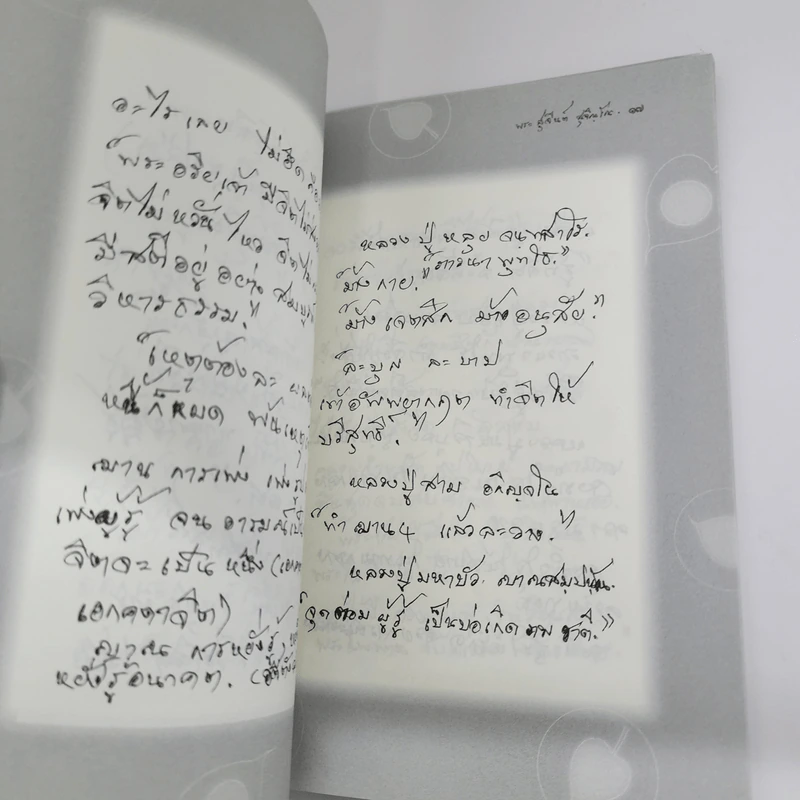 อะไรเลย ไม่ยึด
"พระอริยเจ้า มีจิตไม่
จิตไม่หวั่นไหว จิตไม่
มีสติอยู่อย่าง สมบูรณ์
วิหารธรรม."
"เหตุต้องละ ผล
หนี้ก็หมด พ้นเหตุ
ฌาน การเพ่ง เพ่งรู
เพ่งผู้รู้ จน อารมณ์เป็
จิตจะเป็นหนึ่ง (เอก
เอกคตาจิต)
ญาณ การหยั่งรู้
หยั่งรู้อนาคต.
พระ ๑๗
หลวงปู่หลุย จนฺทสาโร.
ม้างกาย. "ภาวนา พุทโธ."
"ม้างเจตสิก ม้างอนุสัย."
"ละบุญ ละบาป
เข้าอัพพยากฤต ทำจิตให้
บริสุทธิ์."
หลวงปู่สาม อกิญฺจโน
"ทำฌาน ๔ แล้วละวาง."
หลวงปู่มหาบัว. ญาณสมฺปนฺโน.
"จุดต่อมผู้รู้ เป็นบ่อเกิด ภพ ชาติ."